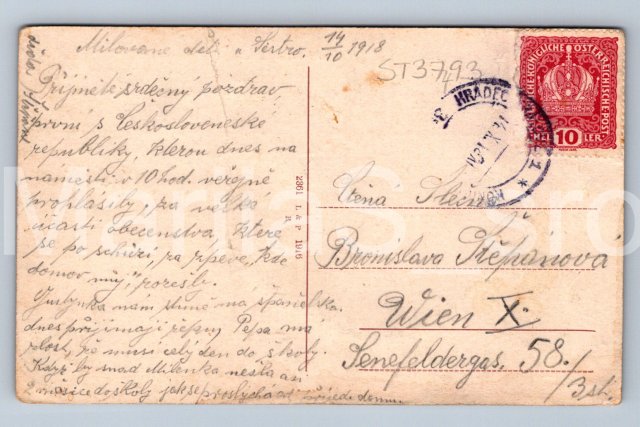 Milované děti a Sestro. 14/10 1918
ST3793
Přijměte srdečný pozdrav
první z Československé
republiky, kterou dnes na
náměstí v 10 hod. veřejně
prohlásily, za velké
účasti obecenstva, které
se po schůzi, za zpěvu, kde
domov můj, rozešly.
nám má španělku.
dnes přijímají řepu, Pepa má
zlost, že musí celý den do školy.
Když by snad Milenka nešla asi
2 měsíce do školy
domu.
2361 L & P 1916
HRADEC
KÖNIGLICHE ÖSTERREICHISCHE POST
10
LER
Ctěná Slečna
Bronislava Štěpánová
Wien X.
Senefeldergas. 58./
/3 st.